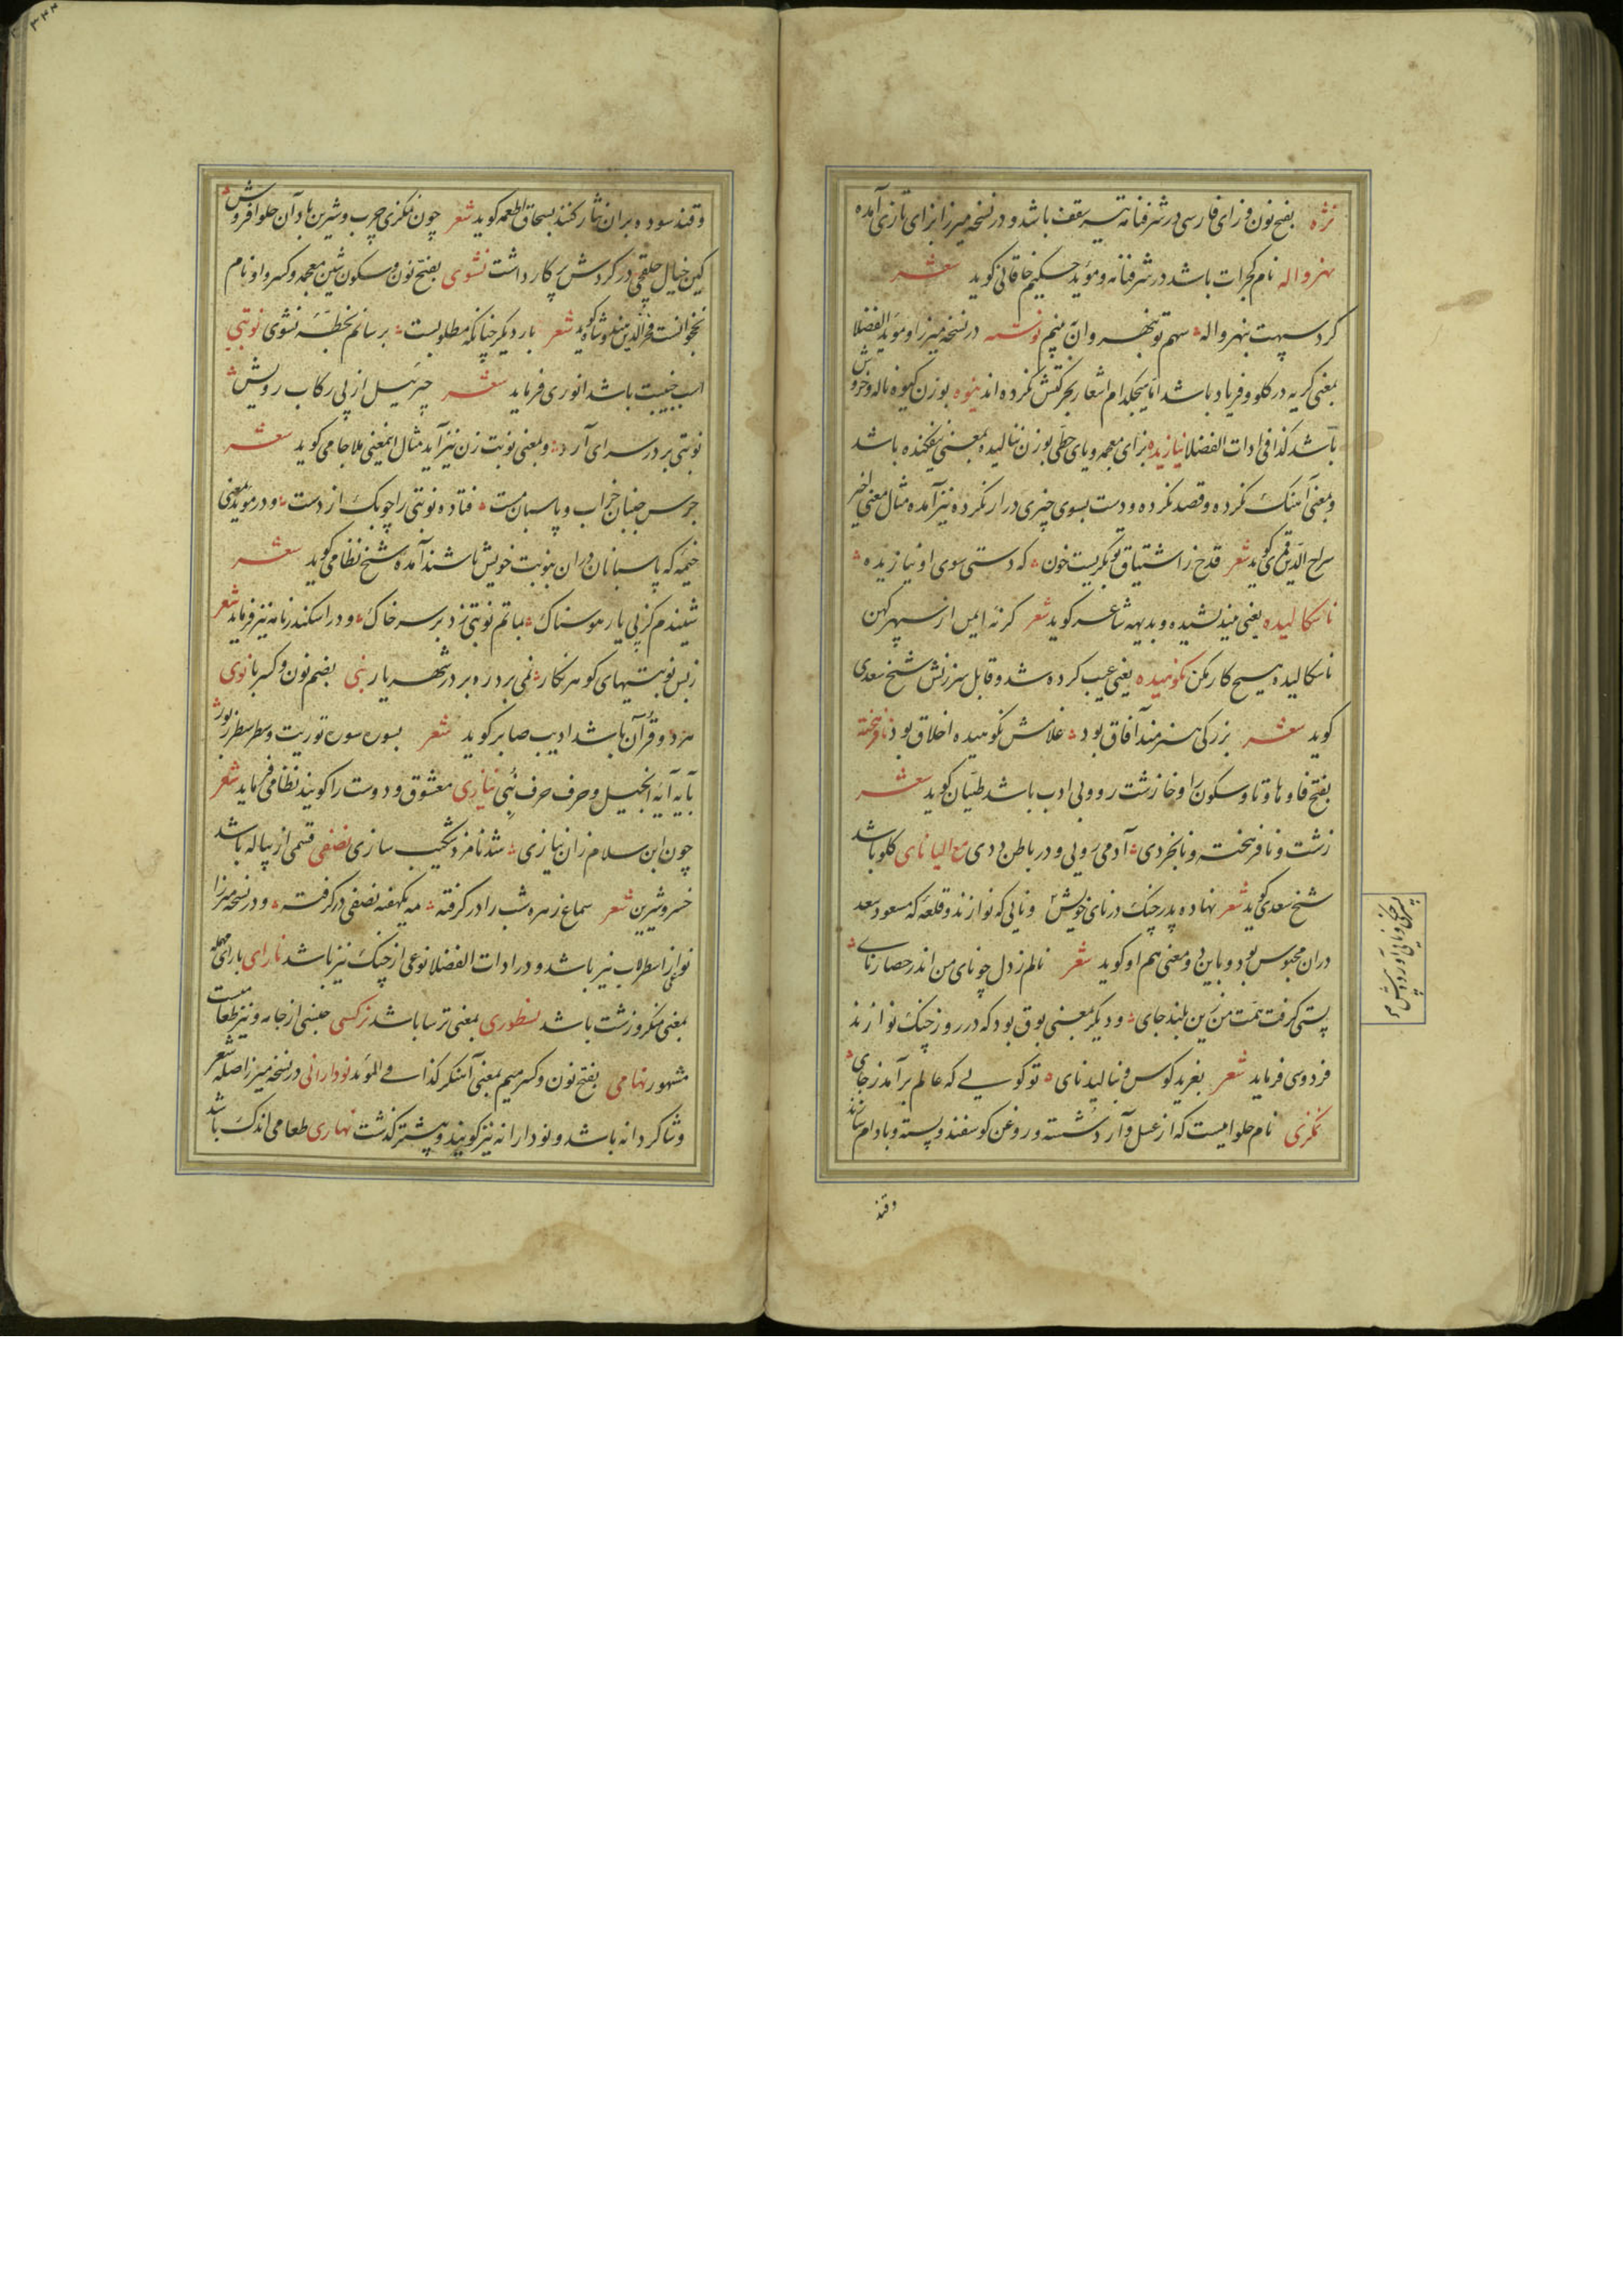 نژه بفتح نون و زای فارسی در شرفنامه تیر سقف باشد و در نسخه میرزا بزای تازی آمده
نهرواله نام کجرات باشد در شرفنامه و موید حکیم خاقانی کوید شعر
کرد سپهت بنهرواله سهم تو بنهروان بینم نوشه در نسخه میرزا و موید الفضلا
بمعنی کریه در کلو و فریاد باشد اما هیچکدام اشعار بحرکتش نکرده اند نیوه بوزن کیوه ناله و خروش
باشد کذا فی ادات الفضلا نیازیده بزای معجمه و یای حطی بوزن ننالیده بمعنی نیفکنده باشد
و بمعنی آهنک نکرده و قصد نکرده و دست بسوی چیزی دراز نکرده نیز آمده مثال معنی اخیر
سراج الدین قمری کوید شعر قدح ز اشتیاق تو بکریست خون که دستی سوی او نیازیده
ناسکالیده یعنی نیندیشیده و بدیهه شاعر کوید شعر کرنه ایمن از سپهر کهن
ناسکالیده هیچ کار مکن نکوهیده یعنی عیب کرده شد و قابل سرزنش شیخ سعدی
کوید شعر بزرکی هنرمند آفاق بود غلامش نکوهیده اخلاق بود نافرهخته
بفتح فا و ها و تا و سکون را و خا زشت رو و بی ادب باشد طیان کوید شعر
زشت و نافرهخته و نابخردی آدمی رویی و در باطن ددی مع الیا نای کلو باشد
شیخ سعدی کوید شعر نهاده پدر چنک در نای خویش و نایی که نوازند و قلعه که مسعود سعد
پسر چنکی و نایی آورده پیش
دران محبوس بود و باین دو معنی هم او کوید شعر نالم ز دل چو نای من اندر حصار نای
پستی کرفت همت من زین بلند جای و دیکر بمعنی بوق بود که در روز جنک نوازند
فردوسی فرماید شعر بغرید کوس و بنالید نای تو کویی که عالم برآمد ز جای
نکزی نام حلواییست که از عسل و آرد شسته و روغن کوسفند و پسته و بادام سازند
وقند
وقند سوده بران نثار کنند بسحاق اطعمه کوید شعر چون نکزی چرب و شیرین باد آن حلوا فروش
کین خیال حلقچی در کردش پرکار داشت نشوی بفتح نون و سکون شین معجمه و کسر واو نام
نخجوانست فخر الدین هندوشاه کوید شعر بار دیکر چنانکه مطلوبست برسانم بخطه نشوی نوبتی
اسب جنیبت باشد انوری فرماید شعر جبرئیل از پی رکاب رویش
نوبتی بر در سرای آرد و بمعنی نوبت زن نیز آید مثال اینمعنی ملا جامی کوید شعر
جرس جنبان خراب و پاسبان مست فتاده نوبتی را چوبک از دست و در موید بمعنی
خیمه که پاسبانان دران بنوبت خویش باشند آمده شیخ نظامی کوید شعر
شنیدم کز پی یار هوسناک بماتم نوبتی زد بر سر خاک و در اسکندرنامه نیز فرماید شعر
ز بس نوبتیهای کوهر نکار نمی برد ره بر در شهریار نبی بضم نون و کسر با نوی
هر دو قرآن باشد ادیب صابر کوید شعر بسوره سوره توریت و سطر سطر زبور
بآیه آیه انجیل و حرف حرف نبی نیازی معشوق و دوست را کویند نظامی فرماید شعر
چون ابن سلام زان نیازی شد نامزد شکیب سازی نصفی قسمی از پیاله باشد
خسرو شیرین شعر سماع زهره شب را در کرفته مه یکهفته نصفی در کرفته و در نسخه میرزا
نوعی از اسطرلاب نیز باشد و در ادات الفضلا نوعی از چنک نیز باشد نارای با رای مهمله
بمعنی منکر و زشت باشد نسطوری بمعنی ترسا باشد نرکسی جنسی از جامه و نیز طعامیست
مشهور نهامی بفتح نون و کسر میم بمعنی آهنکر کذا فی الموید نودارانی در نسخه میرزا صله شعر
و شاکردانه باشد و نودارانه نیز کویند و پیشتر کذشت نهاری طعامی اندک باشد